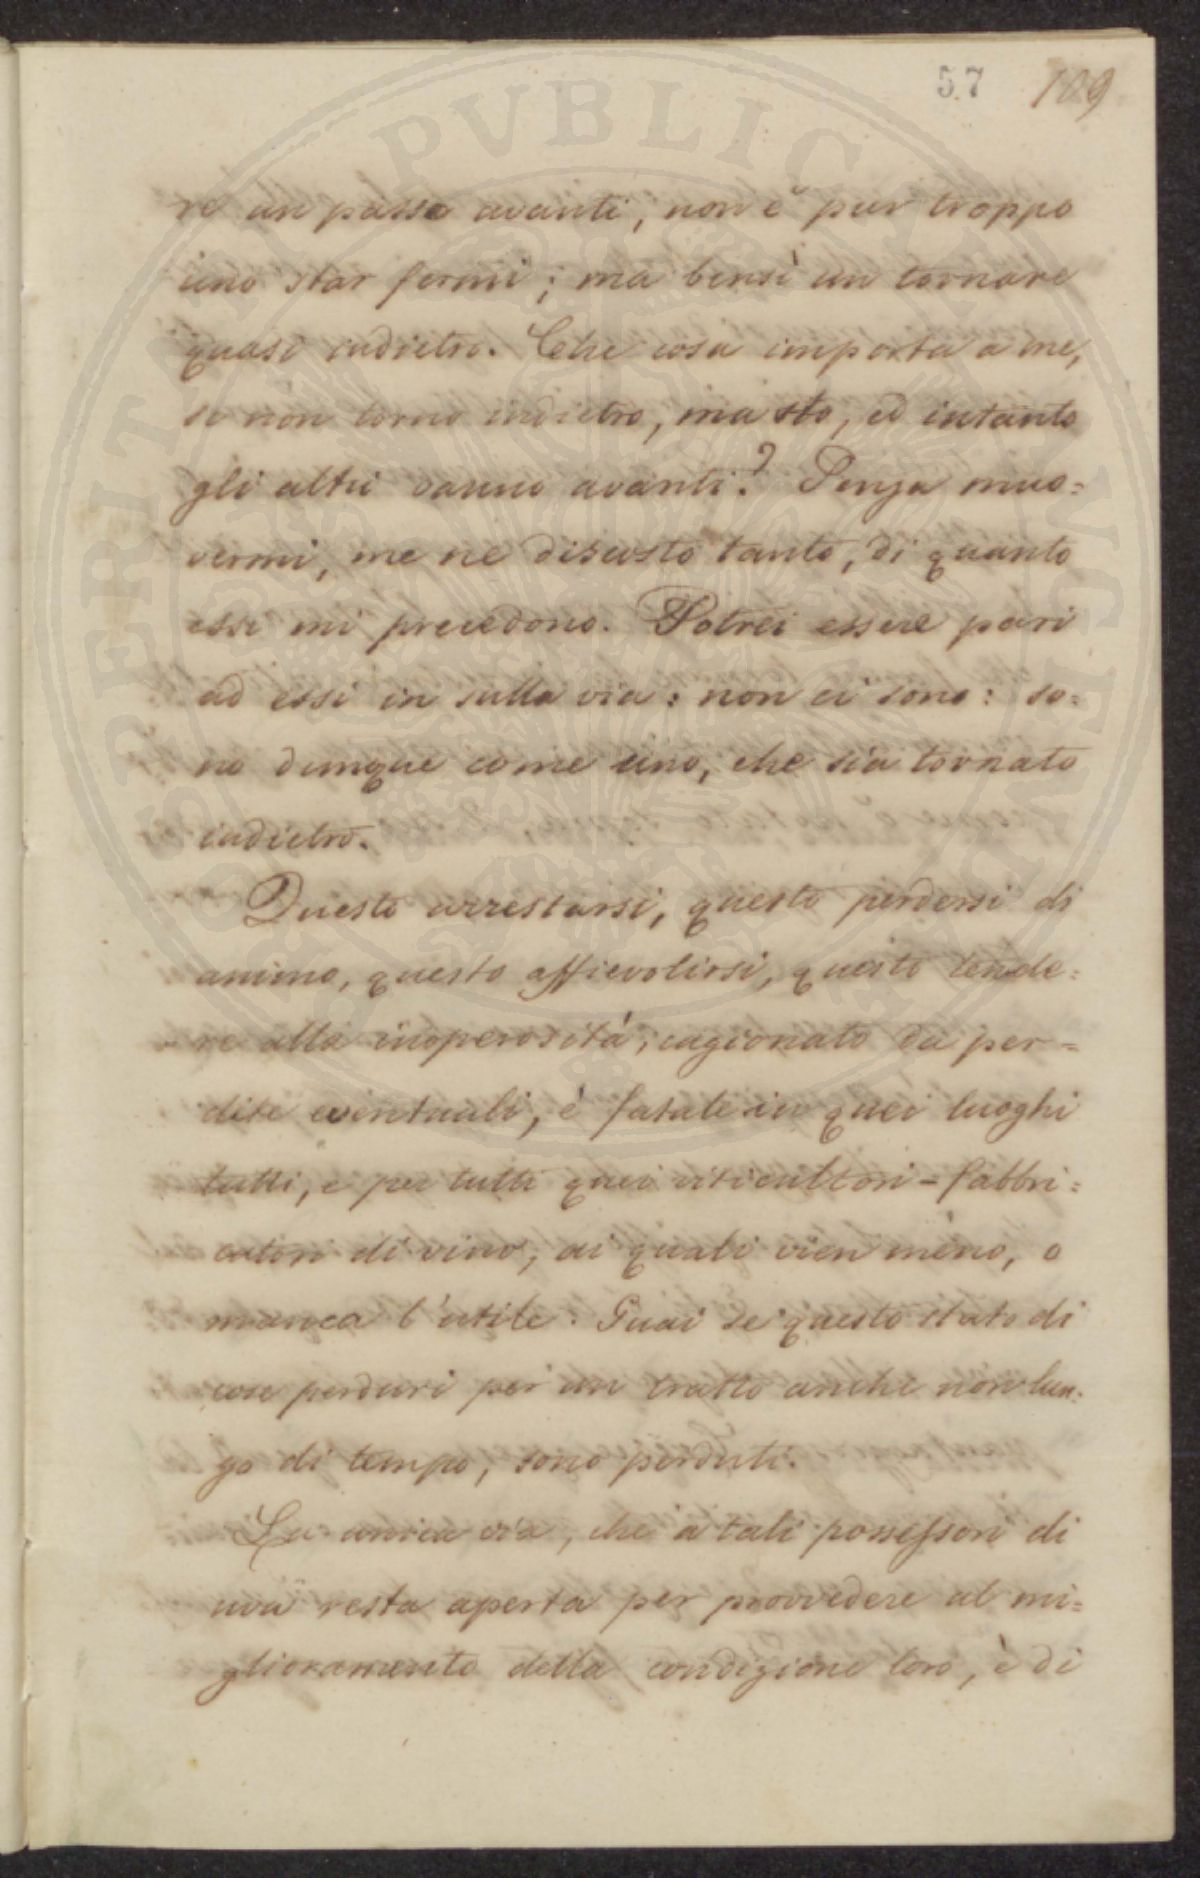 57 109
re un passo avanti, non è pur troppo
uno star fermi; ma bensì un tornare
quasi indietro. Che cosa importa a me,
se non torno indietro, ma sto, ed intanto
gli altri vanno avanti? Senza muo=
vermi, me ne discosto tanto, di quanto
essi mi precedono. Potrei essere pari
ad essi in sulla via: non ci sono: so=
no dunque come uno, che sia tornato
indietro.
Questo arrestarsi, questo perdersi di
animo, questo affievolirsi, questo tende=
re alla inoperosità, cagionato da per=
dite eventuali, è fatale in quei luoghi
tutti, e per tutti quei viticultori-fabbri=
catori di vino, ai quali vien meno, o
manca l'utile. Guai se questo stato di
cose perduri per un tratto anche non lun=
go di tempo, sono perduti.
La unica via, che a tali possessori di
uva resta aperta per provvedere al mi=
glioramento della condizione loro, è di
PROSPERITATI PVBLICAE AVGENDAE